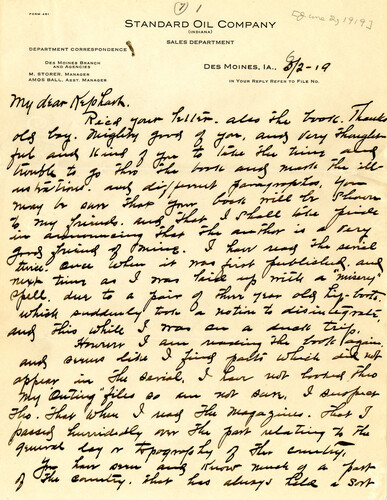 FORM 491
(7) 1
[June 2, 1919]
STANDARD OIL COMPANY
(INDIANA)
SALES DEPARTMENT
DEPARTMENT CORRESPONDENCE
DES MOINES BRANCH
AND AGENCIES
M. STORER, MANAGER
AMOS BALL, ASST. MANAGER
DES MOINES, IA., 6/2-19
IN YOUR REPLY REFER TO FILE NO.
My dear Kephart.
Rec'd your letter. also the book. Thanks
old boy. Mighty good of you, and very though-
ful and kind of you to take the time and
trouble to go thru the book and mark the ill-
ustrations. and different paragraphs, you
may be sure that your book will be shown
to my friends. and that I shall take pride
in announcing that the author is a very
good friend of mine. I have read the serial
twice. once when it was first published. and
next time as I was laid up with a "misery"
spell. due to a pair of three year old hip-boots.
which suddenly took a notion to disintegrate
and this while I was on a duck trip.
However I am reading the book again.
and seems like I find parts which did not
appear in the serial. I have not looked thru
my Outing files so am not sure. I suspect
tho. that when I read the Magazines. that I
passed hurriedly over the part relating to the
general lay or topography of the country.
You have seen and know much of a part
of the country. that has always held a sort